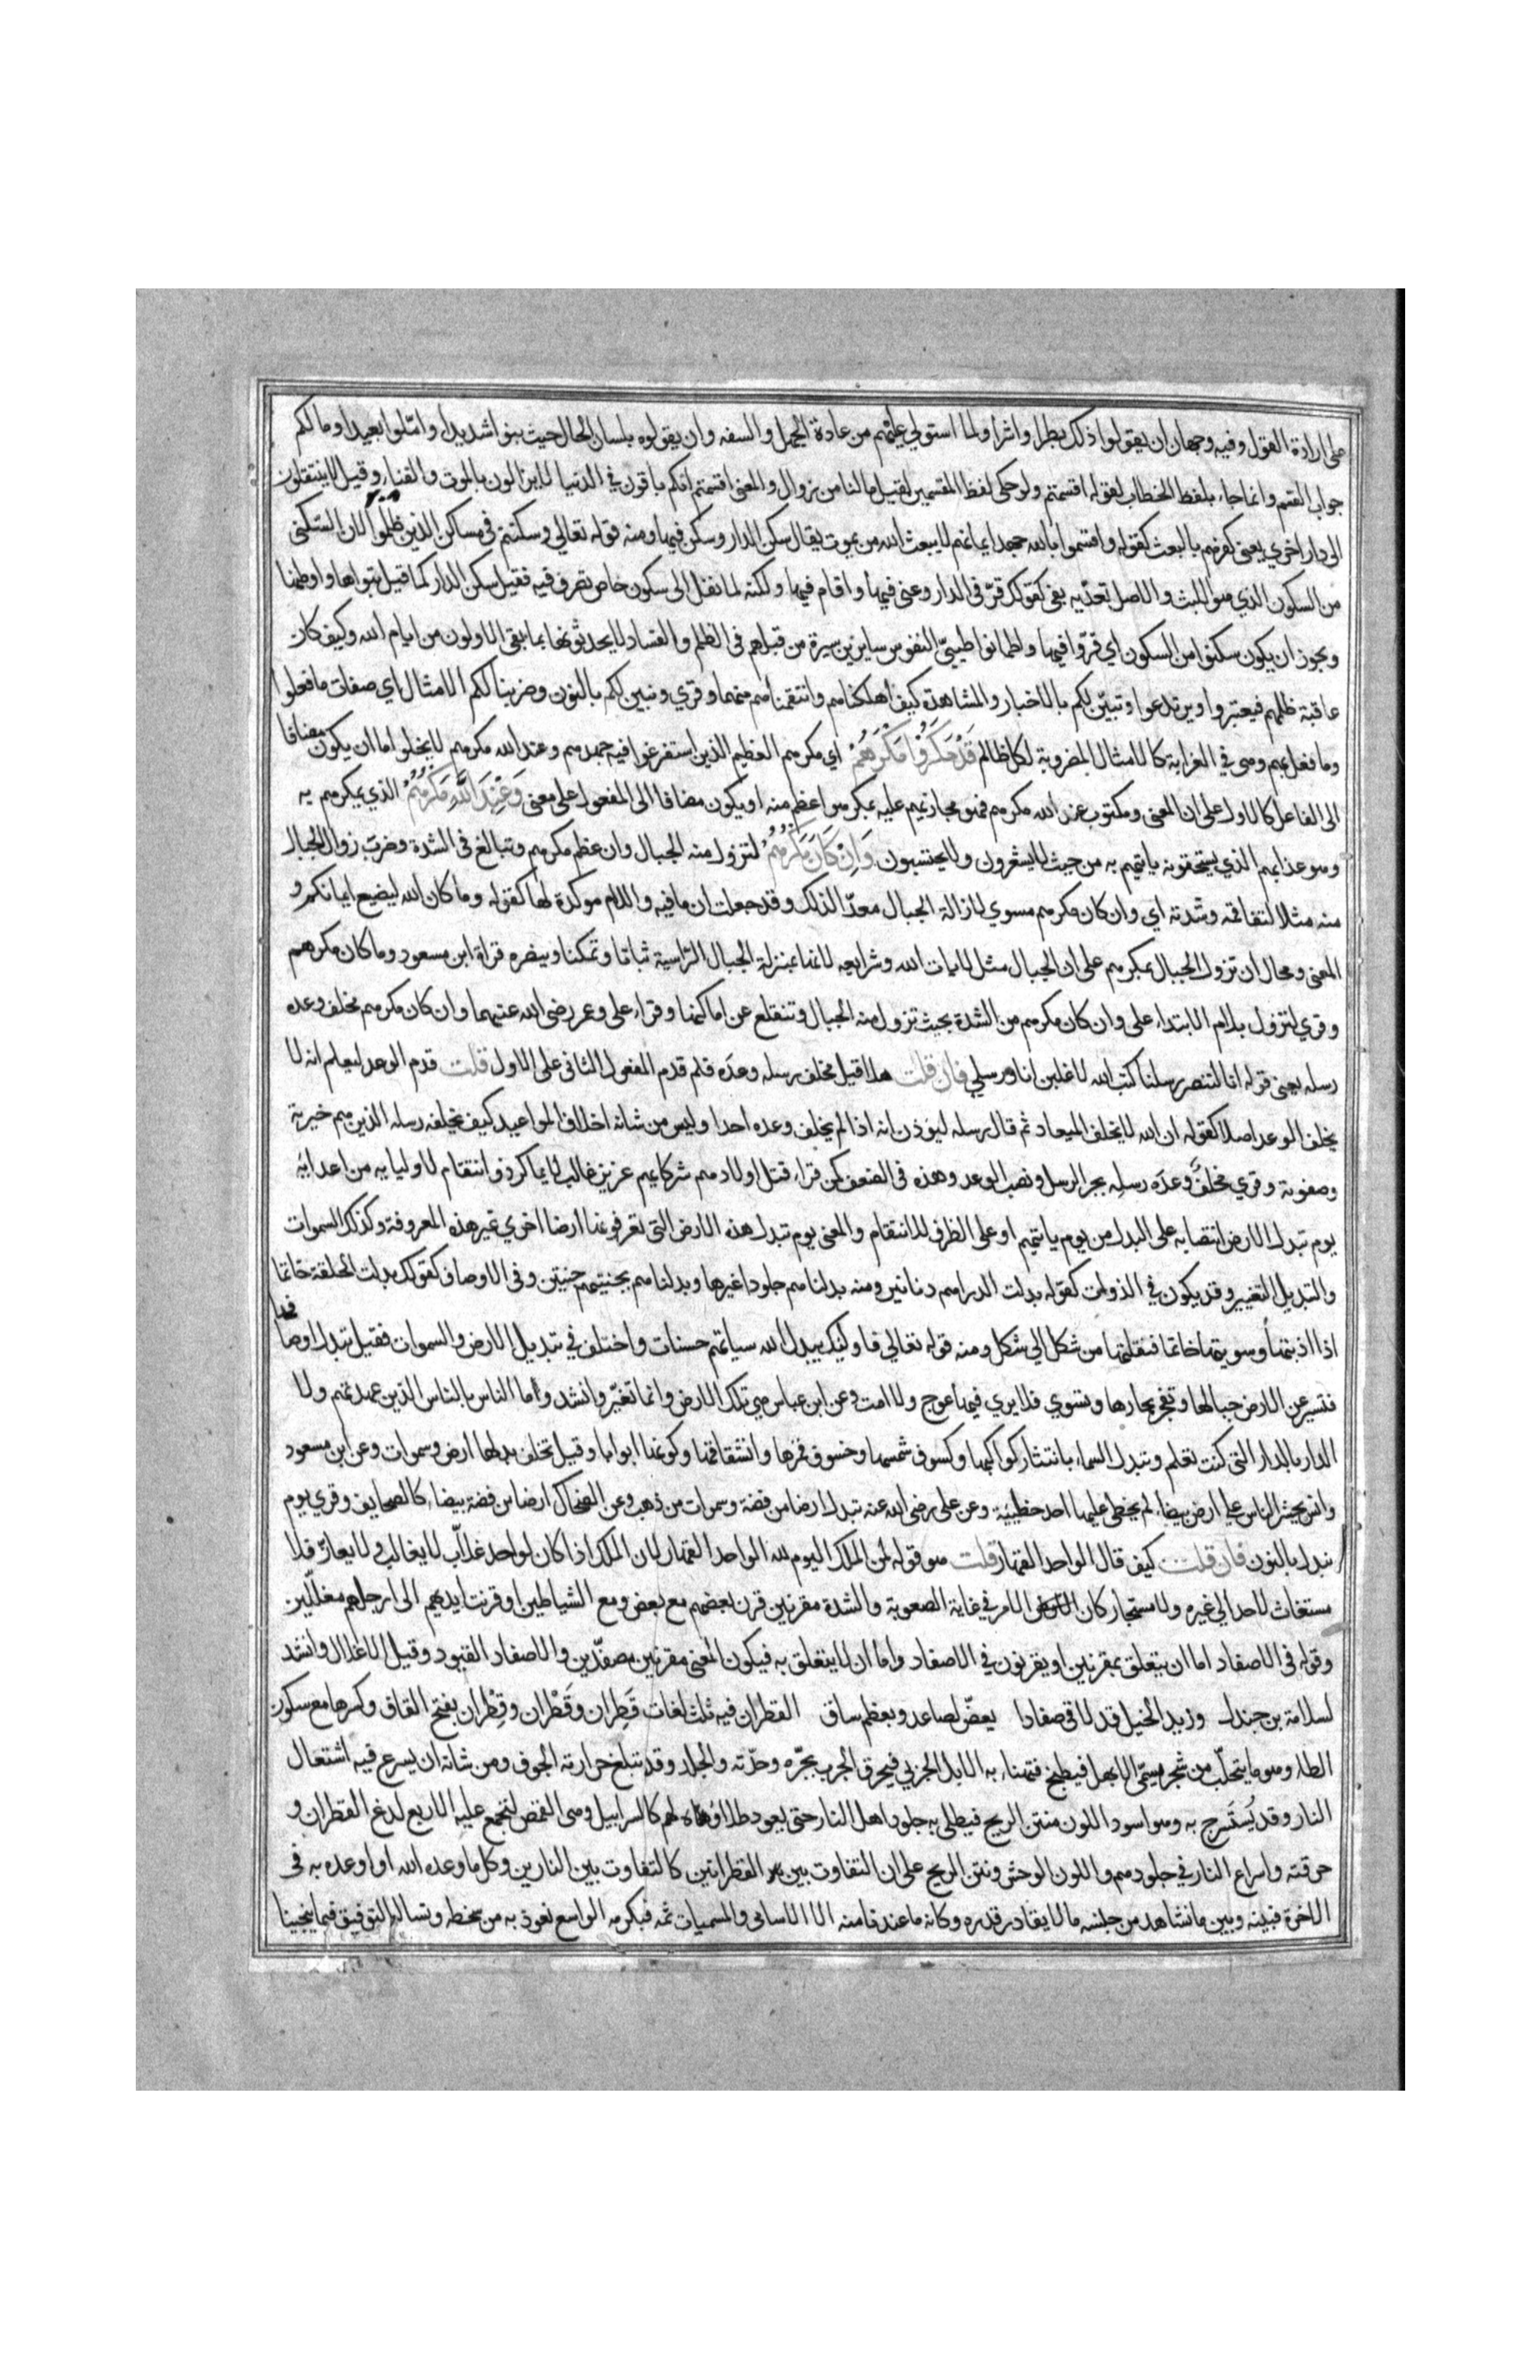 على ارادة القول وفيه وجهان ان يقولوا ذلك بطرا واشرا ولما استولى عليهم من عادة الجهل والسفه وان يقولوه بلسان الحال حيث بنوا شديدا واملوا بعيدا وما لكم
جواب القسم وانما جاء بلفظ الخطاب لقوله اقسمتم ولو حكى لفظ المقسمين لقيل ما لنا من زوال والمعنى اقسمتم انكم باقون في الدنيا لا تزالون بالموت والفناء وقيل لا ينتقلون
الى دار اخرى يعنى كفرهم بالبعث كقوله واقسموا بالله جهد ايمانهم لا يبعث الله من يموت يقال سكن الدار وسكن فيها ومنه قوله تعالى وسكنتم فى مساكن الذين ظلموا لان السكنى
من السكون الذي هو اللبث والاصل تعديه بفى كقولك قرّ فى الدار وغنى فيها واقام فيها ولكنه لما نقل الى سكون خاص تصرف فيه فقيل سكن الدار كما قيل تبواها واوطنها
ويجوز ان يكون سكنوا من السكون اي قرّوا فيها واطمانوا طيبى النفوس سايرين سيرة من قبلهم فى الظلم والفساد لا يحدثونها بما بقى الاولون من ايام الله وكيف كان
عاقبة ظلمهم فيعتبروا ويرتدعوا وتبيّن لكم بالاخبار والمشاهدة كيف اهلكناهم وانتقمنا منهم وقري ونبين لكم بالنون وضربنا لكم الامثال اي صفات ما فعلوا
وما فعل بهم وهى في الغرابة كالامثال المضروبة لكل ظالم قَدْ مَكَرُوْا مَكْرَهُمْ اي مكرهم العظيم الذين استفرغوا فيه جهدهم وعند الله مكرهم لا يخلوا اما ان يكون مضافا
الى الفاعل كالاول على ان المعنى ومكتوب عند الله مكرهم فهو مجازيهم عليه بمكر هو اعظم منه او يكون مضافا الى المفعول على معنى وَعِنْدَ اللَّهِ مَكْرُهُمْ الذي يمكرهم به
وهو عذابهم الذي يستحقونه ياتيهم به من حيث لا يشعرون ولا يحتسبون وَاِنْ كَانَ مَكْرُهُمْ لتزول منه الجبال وان عظم مكرهم وتبالغ فى الشدة وضرب زوال الجبال
منه مثلا لتفاقمه وشدته اي وان كان مكرهم مسوي لازالة الجبال معدّا لذلك وقد جعلت ان مافيه واللام موكدة لها كقوله وما كان الله ليضيع ايمانكم و
المعنى ومحال ان تزول الجبال بمكرهم على ان الجبال مثل لايات الله وشرايعه لانها بمنزلة الجبال الراسية ثباتا وتمكنا وينصره قراة ابن مسعود وما كان مكرهم
وقري لتزول بلام الابتداء على وان كان مكرهم من الشدة بحيث تزول منه الجبال وتنقلع عن اماكنها وقراء على وعمر رضى الله عنهما وان كان مكرهم مخلف وعده
رسله يعنى قوله انا لننصر رسلنا كتب الله لاغلبن انا ورسلي فان قلت هلا قيل مخلف رسله وعدَه فلم قدم المفعول الثانى على الاول قلت قدم الوعد ليعلم انه لا
يخلف الوعد اصلا كقوله ان الله لا يخلف الميعاد ثم قال رسله ليؤذن انه اذا لم يخلف وعده احدا وليس من شانه اخلاف المواعيد كيف يخلفه رسله الذين هم خيرته
وصفوته وقري مخلفَ وعدَه رسلِه بجر الرسل ونصب الوعد وهذه فى الضعف كمن قراء قتل اولادهم شركايهم عزيز غالب لا يماكر ذو انتقام لاوليايه من اعدايه
يوم تبدل الارض انتصابه على البدل من يوم ياتيهم او على الظرف للانتقام والمعنى يوم تبدل هذه الارض التى تعرفونها ارضا اخري غير هذه المعروفة وكذلك السموات
والتبديل التغيير وقد يكون في الذوات كقوله بدلت الدراهم دنانير ومنه بدلناهم جلودا غيرها وبدلناهم بجنتيهم جنتين وفى الاوصاف كقولك بدلت الحلقة خاتما
اذا اذبتها وسويتها خاتما فنقلتها من شكل الي شكل ومنه قوله تعالى فاوليك يبدل الله سياتهم حسنات واختلف في تبديل الارض والسموات فقيل تبدل اوصافها
فتسير عن الارض جبالها وتفجر بحارها وتسوي فلا يري فيها عوج ولا امت وعن ابن عباس هي تلك الارض وانما تغيّر وانشد واما الناس بالناس الذين عهدتهم ولا
الدار بالدار التى كنت تعلم وتبدل السماء بانتثار كواكبها وكسوف شمسها وخسوف قمرها وانشقاقها وكونها ابوابا وقيل تخلف بدلها ارض وسموات وعن ابن مسعود
وانس يحشر الناس علي ارض بيضاء لم يخطى عليها احد خطيئة وعن على رضى الله عنه تبدل ارضا من فضة وسموات من ذهب وعن الضحاك ارضا من فضة بيضاء كالصحايف وقري يوم
نبدل بالنون فان قلت كيف قال الواحد القهار قلت هو قوله لمن الملك اليوم لله الواحد القهار لان الملك اذا كان لواحد غلاّب لا يغالب ولا يعازّ فلا
مستغاث لاحد الي غيره ولا مستجار كان الامر في غاية الصعوبة والشدة مقرنين قرن بعضهم مع بعض ومع الشياطين او قرنت ايديهم الى ارجلهم مغللين
وقوله فى الاصفاد اما ان يتعلق بمقرنين او يقرنون في الاصفاد واما ان لا يتعلق به فيكون المعنى مقرنين مصفدين والاصفاد القيود وقيل الاغلال وانشد
لسلامة بن جندل وزيد الخيل قد لاقى صفادا يعضّ لصاعد وبعظم ساق القطران فيه ثلث لغات قَطِران وقَطْران وقِطْران بفتح القاف وكسرها مع سكون
الطاء وهو ما يتحلّب من شجر يسمّى الابهل فيطبخ فتهناء به الابل الجربي فيحرق الجرب بحرّه وحدّته والجلد وقد تبلغ حرارته الجوف ومن شانه ان يسرع فيه اشتعال
النار وقد يُستَسرج به وهو اسود اللون منتن الريح فيطلى به جلود اهل النار حتى يعود طلاؤه لهم كالسرابيل وهى القمص لتجمع عليه الاربع لدغ القطران و
حرقته واسراع النار في جلودهم واللون الوحش ونتن الريح على ان التفاوت بين القطرانين كالتفاوت بين النارين وكل ما وعده الله او اوعده به فى
الاخرة فبينه وبين ما نشاهد من جنسه ما لا يقادر قدره وكانه ما عندنا منه الا الاسامى والمسميات ثمه فبكرمه الواسع نعوذ به من سخطه ونساله التوفيق فيما ينجينا